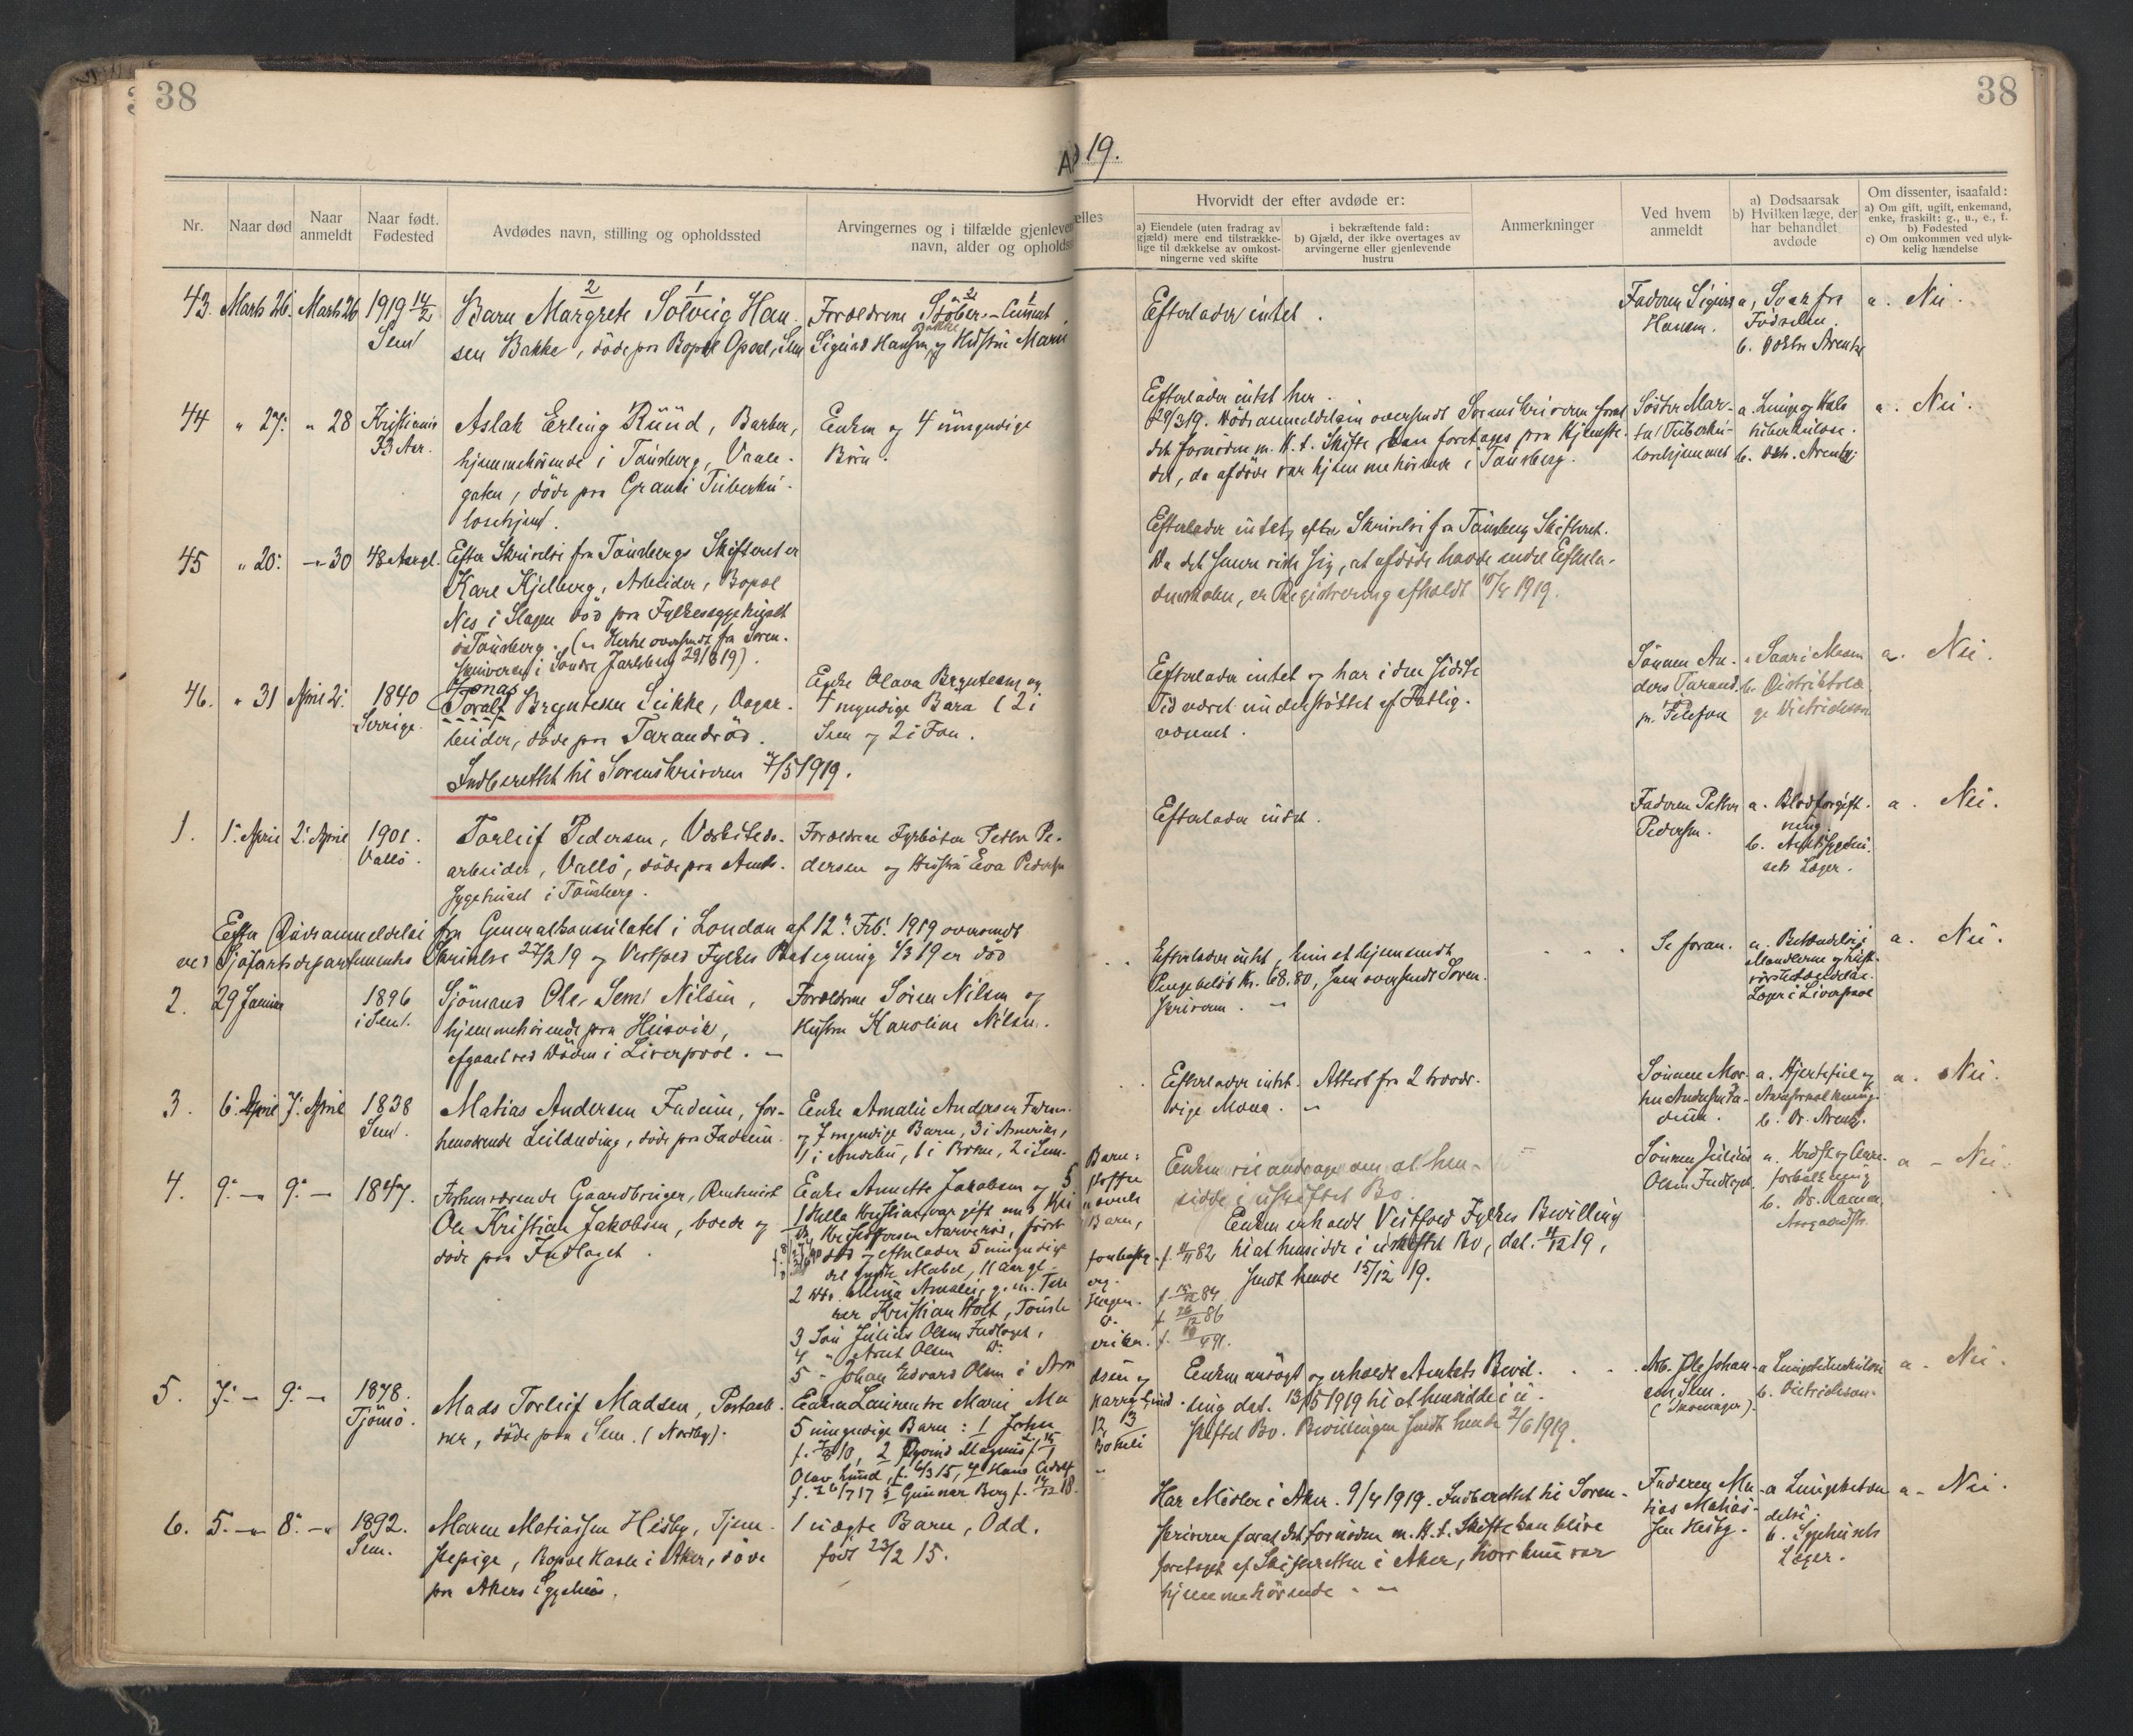 38
38
A
19.
Nr.
Naar død
Naar anmeldt
Naar født. Fødested
Avdødes navn, stilling og opholdssted
Arvingernes og i tilfælde gjenleven
navn, alder og opholdss
elles
Hvorvidt der efter avdøde er:
a) Eiendele (uten fradrag av gjæld) mere end tilstrække-lige til dækkelse av omkost-ningerne ved skifte
i bekræftende fald:
b) Gjæld, der ikke overtages av arvingerne eller gjenlevende hustru
Anmerkninger
Ved hvem anmeldt
a) Dødsaarsak
b) Hvilken læge, der har behandlet avdøde
Om dissenter, isaafald:
a) Om gift, ugift, enkemand, enke, fraskilt: g., u., e., f.
b) Fødested
c) Om omkommen ved ulyk-kelig hændelse
43. Marts 26. Marts 26 1919 14/2 Sem
Barn Margrete Solveig Han-
sen Bakke, döde paa Bopæl Opsal, Sem
Forældrene Stöber- Cement
Sigurd Hansen Bakke og Hustru Marie
Efterlader intet.
Faderen Sigurd Hansen.
a. Svak fra Födselen.
b. Doktor Arentz
a. Nei.
44 " 27. " 28 Kristiania 33 Aar.
Aslak Erling Ruud, Barber,
hjemmehörende i Tönsberg, Vaale-
gaten, döde paa Granli Tuberku-
losehjem.
Enken og 4 umyndige
Börn.
Efterlader intet her.
29/3 19. Dödsanmeldelsen oversendt Sorenskriveren foral
det fornödne m. H. t. Skifte kan foretages paa Hjemste-
det, da afdöde var hjemmehörende i Tönsberg.
Söster Mar-
ta Tuberku-
losehjemmet
a. Lunge og Hals
tuberkulose.
b. Dok. Arentz.
a. Nei.
45 " 20. -"- 30 48 Aar gl.
Efter Skrivelse fra Tönsbergs Skifteret er
Kare Kjelberg, Arbeider, Bopæl
Nes i Slagen död paa Fylkessygehuset
i Tönsberg. (Herhe oversendt fra Soren-
skriveren i Söndre Jarlsberg 29/3 19).
Efterlader intet, efter Skrivelse fra Tönsberg Skifteret.
Da det senere viste sig, at afdöde havde endel Efterla-
denskaber, er Registrering afholdt 10/4 1919.
46. " 31 April 2. 1840 Sverige
Jonas
Toralf Bryntesen Leikke, Dagar-
beider, döde paa Tarandröd.
Enke Olava Bryntesen og
4 myndige Barn (2 i
Sem og 2 i Fon.
Efterlader intet og har i den sidste
Tid været understöttet af Fattig-
væsenet.
Sönnen An-
ders Tarand.
pr. Telefon
a. Saar i Maven
b. Distriktslæ-
ge Dietrichson
a. Nei.
Indberettet til Sorenskriveren 7/5 1919.
1. 1. April 2. April 1901. Vallö.
Torleif Pedersen, Værksteds-
arbeider, Vallö, döde paa Amts-
sygehuset i Tönsberg.
Forældrene Fyrböter Petter Pe-
dersen og Hustru Eva Pedersen
Efterlader intet.
Faderen Petter Pedersen.
a. Blodforgift-
ning.
b. Amtssygehu-
sets Læger.
a. Nei.
Efter Dödsanmeldelse fra Generalkonsulatet i London af 12. Feb. 1919 oversendt
ved Sjöfartsdepartementets Skrivelse 27/2 19 og Vestfold Fylkes Paategning 1/3 19 er död
2. 29 Januar 1896 i Sem.
Sjömand Ole Semi Nilsen,
hjemmehörende paa Husvik,
afgaaet ved Döden i Liverpool. -
Forældrene Sören Nilsen og
Hustru Karoline Nilsen.
Efterlader intet, hun et hjemsendt
Pengebelöb Kr. 68.80, som oversendt Soren-
skriveren. -"-
Se foran.
a. Betændelse i
Mandlerne og Luft-
rörsbetændelse.
Læger i Liverpool
a. Nei.
3. 6. April 7. April 1838 Sem.
Matias Andersen Fadum, for-
henværende Leilænding, döde paa Fadum.
Enke Amalie Andersen Fadum.
og 7 myndige Barn, 3 i Amerika,
1 i Andebu, 1 i Borre, 2 i Sem.
Efterlader intet. Attest fra 2 trovær-
dige Mænd. -"-
Sönnen Mar-
tin Andersen Fa-
dum.
a. Hjertefeil og
Aareforkalkning.
b. Dr. Arentz.
a. Nei.
4. 9. -"- 9. -"- 1847.
Forhenværende Gaardbruger, Rentenist
Ole Kristian Jakobsen, boede og
döde paa Fudlaget.
Enke Annette Jakobsen og 5 Barn:
1 Hella Kristine, var gift med
Kristoffersen Narverød, först
död - efterlader 5 umyndige Barn,
det yngste Mabel, 11 aar gl.
2 Amalie, g. m.
Kristian Holt, Tönsberg.
3 Sön Julius Olsen Fudlaget,
4 " Arnt Olsen D.
5 " Johan Edvard Olsen i Amerika.
f. 4/11 82
f. 15/12 84
f. 26/12 86
Enken vil andrage om at hen-
sidde i uskiftet Bo.
Enken erholdt Vestfold Fylkes Bevilling
til at hensidde i uskiftet Bo, dat. 4/12 19,
sendt hende 15/12 19.
Sönnen Julius
Olsen Fudlaget.
forkalkning
a - Nei.
5. 7. - 9. - 1878. Tjömö.
Mads Torleif Madsen,
döde paa Sem. (Nordby).
Enken Laurentse Marie Ma dsen og
5 umyndige Barn: 1 John
f. 7/8 10, 2 Øyvind Magnus f.
Olav Lund, f. 6/3 15, 4 Hans Adolf
f. 26/7 17 5 Gunnar Berg f. 14/12 18.
Enken ansögt og erholdt Amtets Bevil-
ling dat. 13/5 1919 til at hensidde i u-
skiftet Bo. Bevillingen sendt hende 2/6 1919.
Arb. Ole Johan-
sen Sem.
a Lungetuberkulose
b. Dietrichson.
a - Nei.
6. 5. -"- 8. -"- 1892. Sem.
Maren Matiassen Hesby, Tjene-
stepige, Bopæl i Aker, döde
paa Akers Sygehus.
1 uægte Barn, Odd,
födt 23/2 15.
Har Midler i Aker. 9/4 1919. Indberettet til Soren-
skriveren foral det fornödne m. H. t. Skifte kan blive
foretaget af Skifteretten i Aker, hvor hun var
hjemmehörende - "-
Faderen Ma-
tias Matias-
sen Hesby.
a Lungebetæn-
delse.
b. Sygehusets
Læger.
a - Nei.